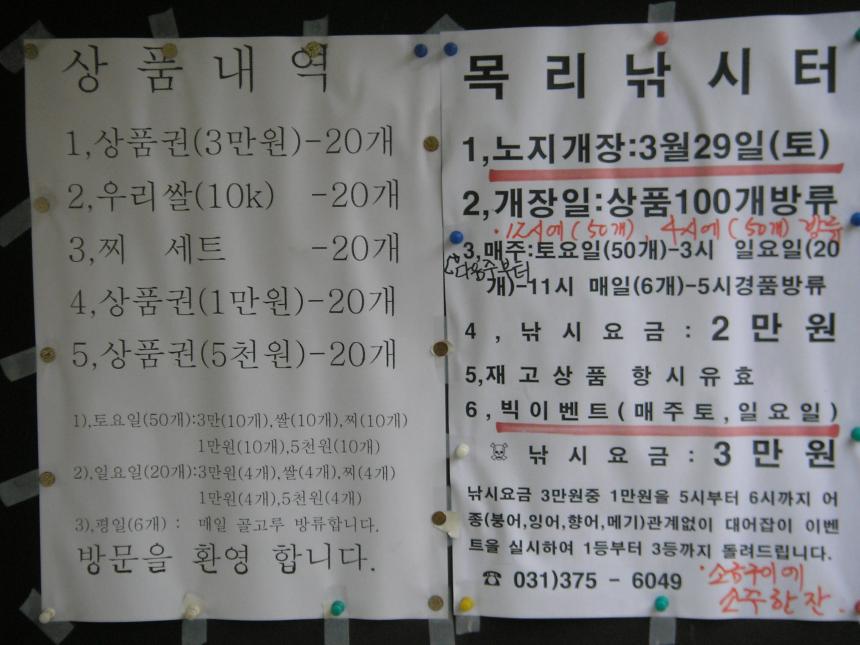 상 품 내 역
1,상품권(3만원)-20개
2,우리쌀(10k) -20개
3,찌 세트 -20개
4,상품권(1만원)-20개
5,상품권(5천원)-20개
1),토요일(50개):3만(10개),쌀(10개),찌(10개)
1만원(10개),5천원(10개)
2),일요일(20개):3만원(4개),쌀(4개),찌(4개)
1만원(4개),5천원(4개)
3),평일(6개) : 매일 골고루 방류합니다.
방문을 환영 합니다.
목 리 낚 시 터
1,노지개장:3월29일(토)
2,개장일:상품100개방류
·12시에(50개), 4시에(50개) 방류
3,매주:토요일(50개)-3시 일요일(20
다음주부터
개)-11시 매일(6개)-5시경품방류
4 , 낚 시 요 금 : 2 만 원
5,재 고 상 품 항 시 유 효
6 , 빅 이 벤 트 ( 매 주 토 , 일 요 일 )
☠ 낚 시 요 금 : 3 만 원
낚시요금 3만원중 1만원을 5시부터 6시까지 어
종(붕어,잉어,향어,메기)관계없이 대어잡이 이벤
트을 실시하여 1등부터 3등까지 돌려드립니다.
☎ 031)375 - 6049
소주한잔.